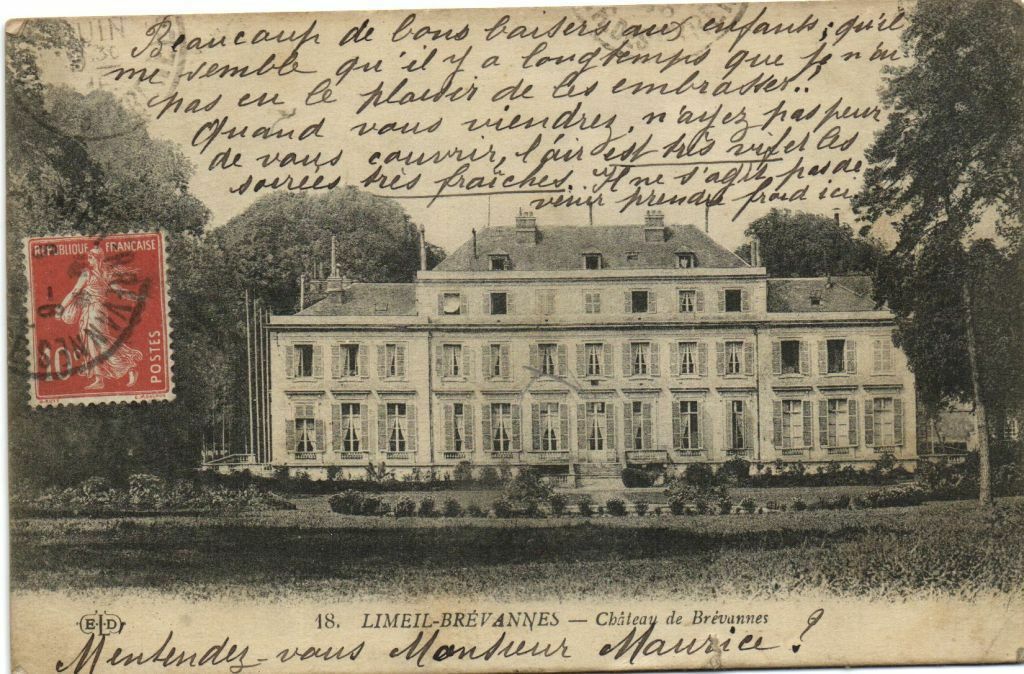 Beaucoup de bons baisers aux enfants; qu'il
me semble qu'il y a longtemps que je n'ai
pas eu le plaisir de les embrasser..
Quand vous viendrez, n'ayez pas peur
de vous couvrir, l'air est très vif et les
soirées très fraîches.. Il ne s'agit pas de
venir prendre froid ici
JUIN
RÉPUBLIQUE FRANÇAISE
10
POSTES
BRÉVANNES
E.L.D
18. LIMEIL-BRÉVANNES — Château de Brévannes
M'entendez-vous Monsieur Maurice?